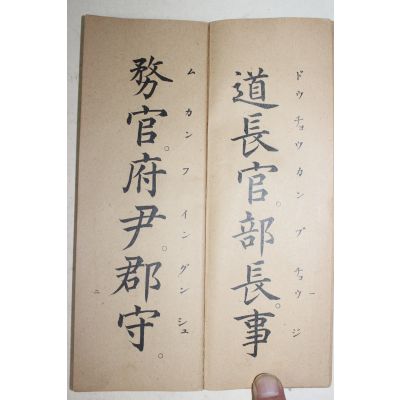 道長官。部長。事
ドウチョウカンブチョウジ
一
務官。府尹。郡守。
ムカンフインングンシュ
二